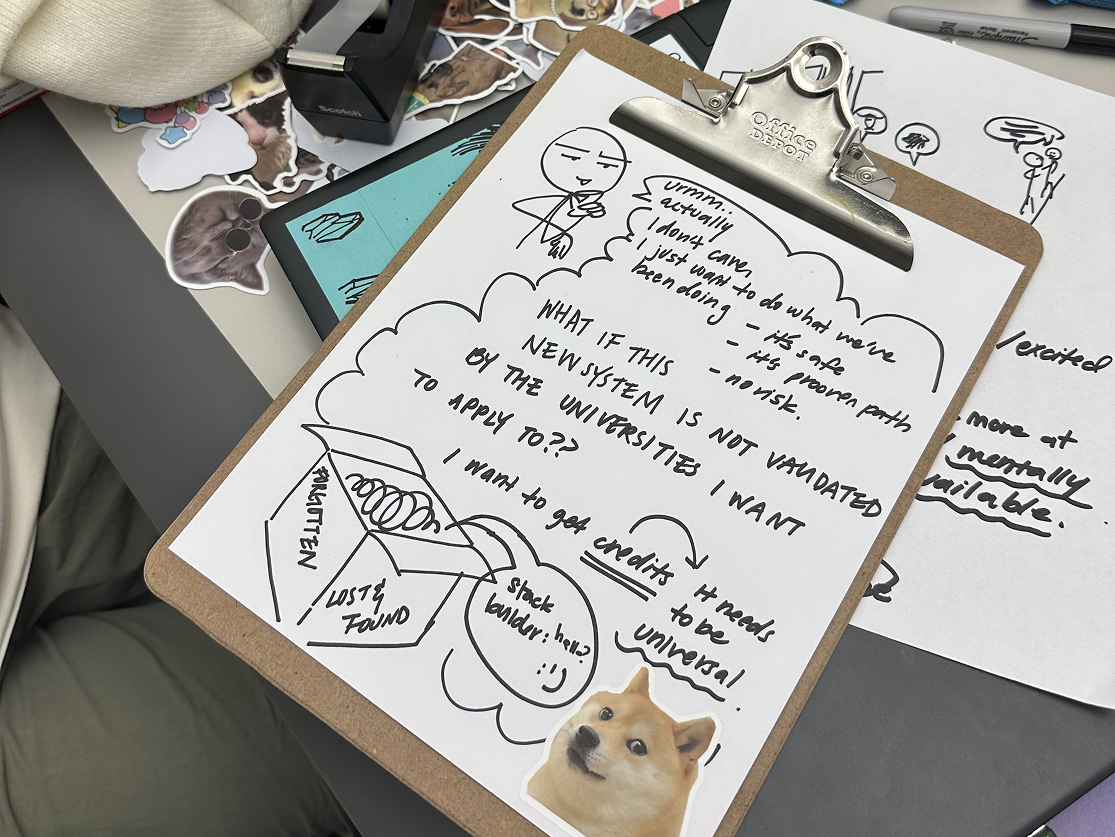 Scotch
Sharpie
Office
DEPOT
urmm..
actually
I don't care,
I just want to do what we've
been doing
- it's safe
- it's prooven path
- no risk.
WHAT IF THIS
NEW SYSTEM IS NOT VALIDATED
BY THE UNIVERSITIES I WANT
TO APPLY TO??
I want to get credits
It needs
to be
universal.
FORGOTTEN
LOST &
FOUND
stack
builder: hello?
:)
/excited
more at
mentally
available.